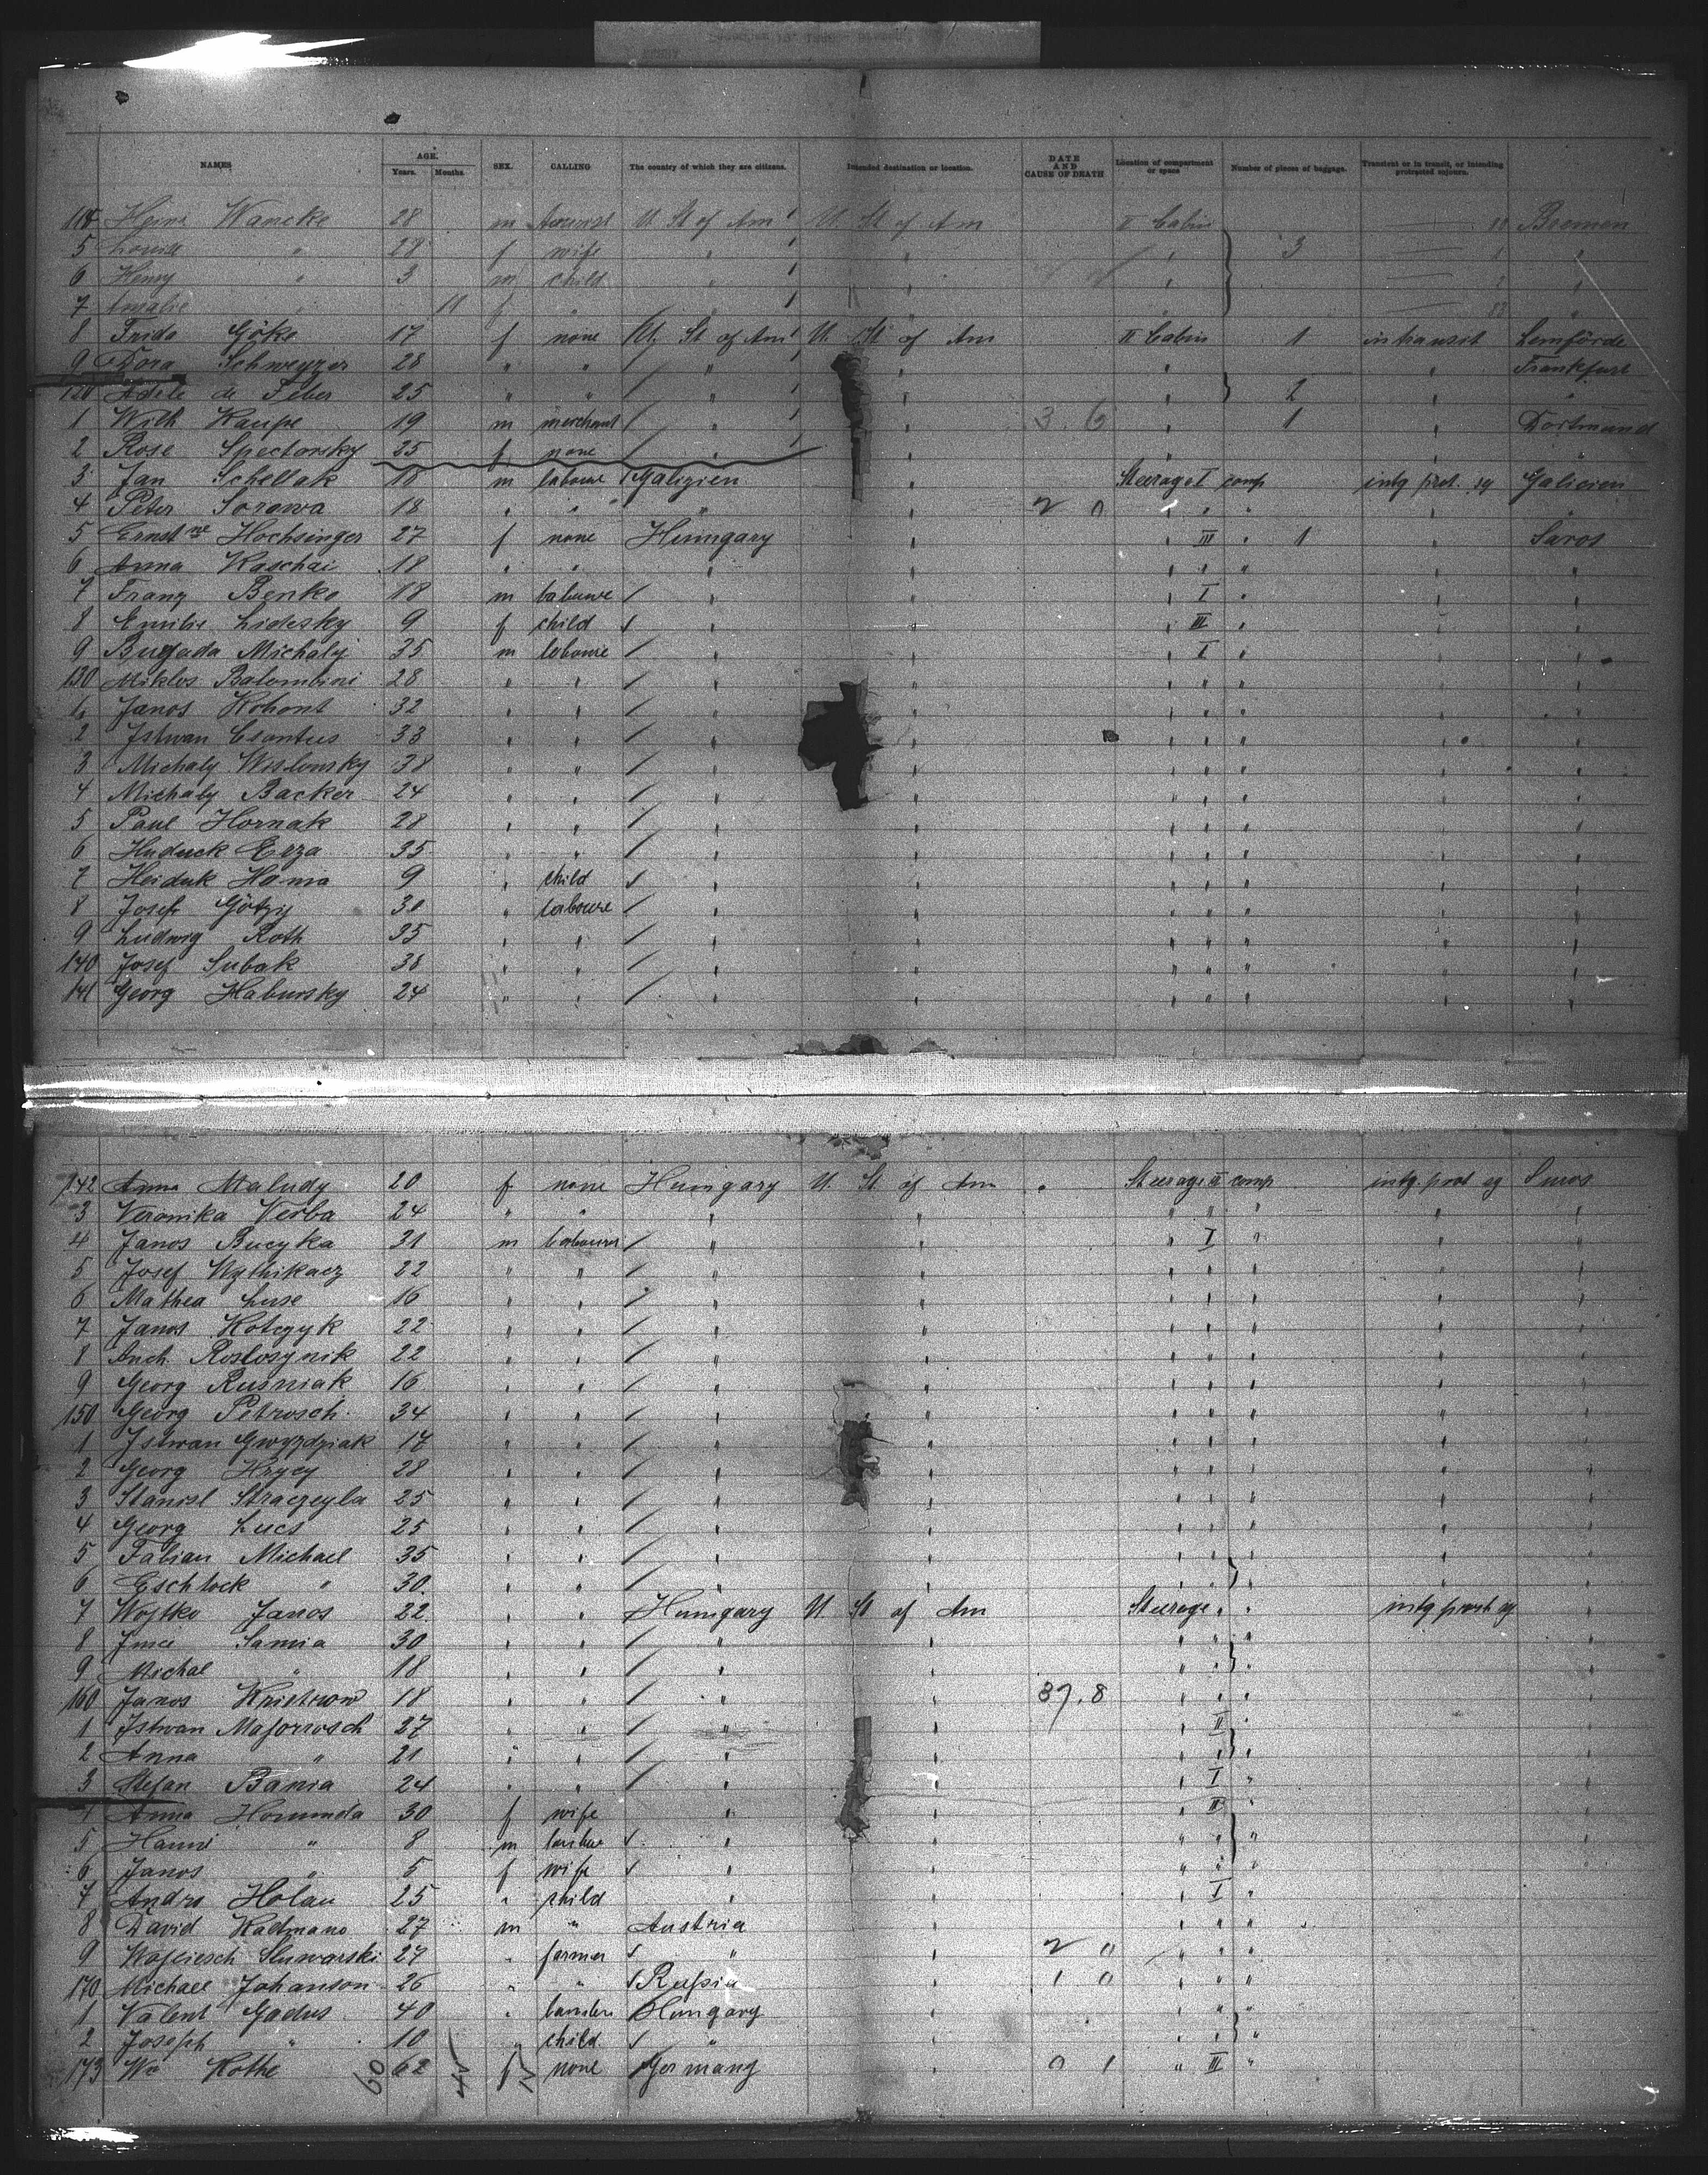 NAMES AGE. Years. Months. SEX. CALLING The country of which they are citizens. Intended destination or location. DATE AND CAUSE OF DEATH Location of compartment or space Number of pieces of baggage. Transient or in transit, or intending protracted sojourn.
Wancke 28 m U. St of Am U. St of Am II Cabin Bremen
5 Louise " 28 f wife " " " 3 "
6 Henry " 3 m child " " " "
7 Amalie " 11 f " " " " "
8 Frida Göke 17 f none U. St of Am U. St of Am II Cabin 1 in transit Lemförde
9 Dora Schweyzer 28 " " " " " " Frankfurt
120 Adele de Feber 25 " " " " " 2 " "
1 Wilh Kaupe 19 m merchant " " 3. 6 " 1 " Dortmund
2 Rose Spectorsky 25 f none " "
3 Jan Schellak 18 m laboure Galizien " Steerage I comp intg prot. sg Galicien
4 Peter Sorowa 18 " " " " 2 0 " " " " "
5 Ernstne Hochsinger 27 f none Hungary " " III " 1 " Saros
6 Anna Kaschai 18 " " " " " " " " "
7 Franz Benko 18 m laboure " " " I " " "
8 Emilie Lidesky 9 f child " " " III " " "
9 Bugada Michaly 35 m laboure " " " I " " "
130 Miklos Balombini 28 " " " " " " " " "
1 Janos Kohont 32 " " " " " " " " "
2 Istwan Csontus 33 " " " " " " " " "
3 Michaly Wislonsky 38 " " " " " " " " "
4 Michaly Backer 24 " " " " " " " " "
5 Paul Hornak 28 " " " " " " " " "
6 Huduck Erza 35 " " " " " " " " "
7 Heiduk Hania 9 " child " " " " " " "
8 Josef Götzy 30 " laboure " " " " " " "
9 Ludwig Roth 35 " " " " " " " " "
140 Josef Subak 38 " " " " " " " " "
141 Georg Habursky 24 " " " " " " " " "
142 Anna Maludy 20 f none Hungary U. St. of Am Steerage II comp intg. prot sg Saros
3 Veronika Verba 24 " " " " " " " " "
4 Janos Bucyka 31 m labourer " " " I " " "
5 Josef 22 " " " " " " " " "
6 Mathea Luse 16 " " " " " " " " "
7 Janos Kotczyk 22 " " " " " " " " "
8 Andr. Roslosynik 22 " " " " " " " " "
9 Georg Rusniak 16 " " " " " " " " "
150 Georg Petrosch 34 " " " " " " " " "
1 Istwan Gwyzdziak 17 " " " " " " " " "
2 Georg Hrycy 28 " " " " " " " " "
3 Stanisl Straczeyla 25 " " " " " " " " "
4 Georg Lucs 25 " " " " " " " " "
5 Fabian Michael 35 " " " " " " " " "
6 Eschlock " 30 " " " " " " " "
7 Wojtko Janos 22 " " Hungary U St of Am Steerage " " intg prot sg "
8 Samia 30 " " " " " " " "
9 Michal " 18 " " " " " " " "
160 Janos Kristrow 18 " " " " 37.8 " " " "
1 Istwan Majorrosch 27 " " " " " II " "
2 Anna " 21 " " " " " " " "
3 Stefan Bania 24 " " " " " I " "
4 Anna Horumda 30 f wife " " " II " "
5 Hanni " 8 m " " " " " "
6 Janos " 5 f wife " " " " "
7 Andro Holan 25 " child " " " I "
8 David Kadmano 27 m " Austria " " " "
9 Wojciesch Sluwarski 27 " farmer " " 2 0 " " "
170 Michael Johanson 26 " " Russia " 1 0 " " "
1 Valent Gadus 40 " Hungary " " " "
2 Joseph " 10 " child " " " " "
173 Wm Kothe 62 f none Germany " 0 1 " III "
60